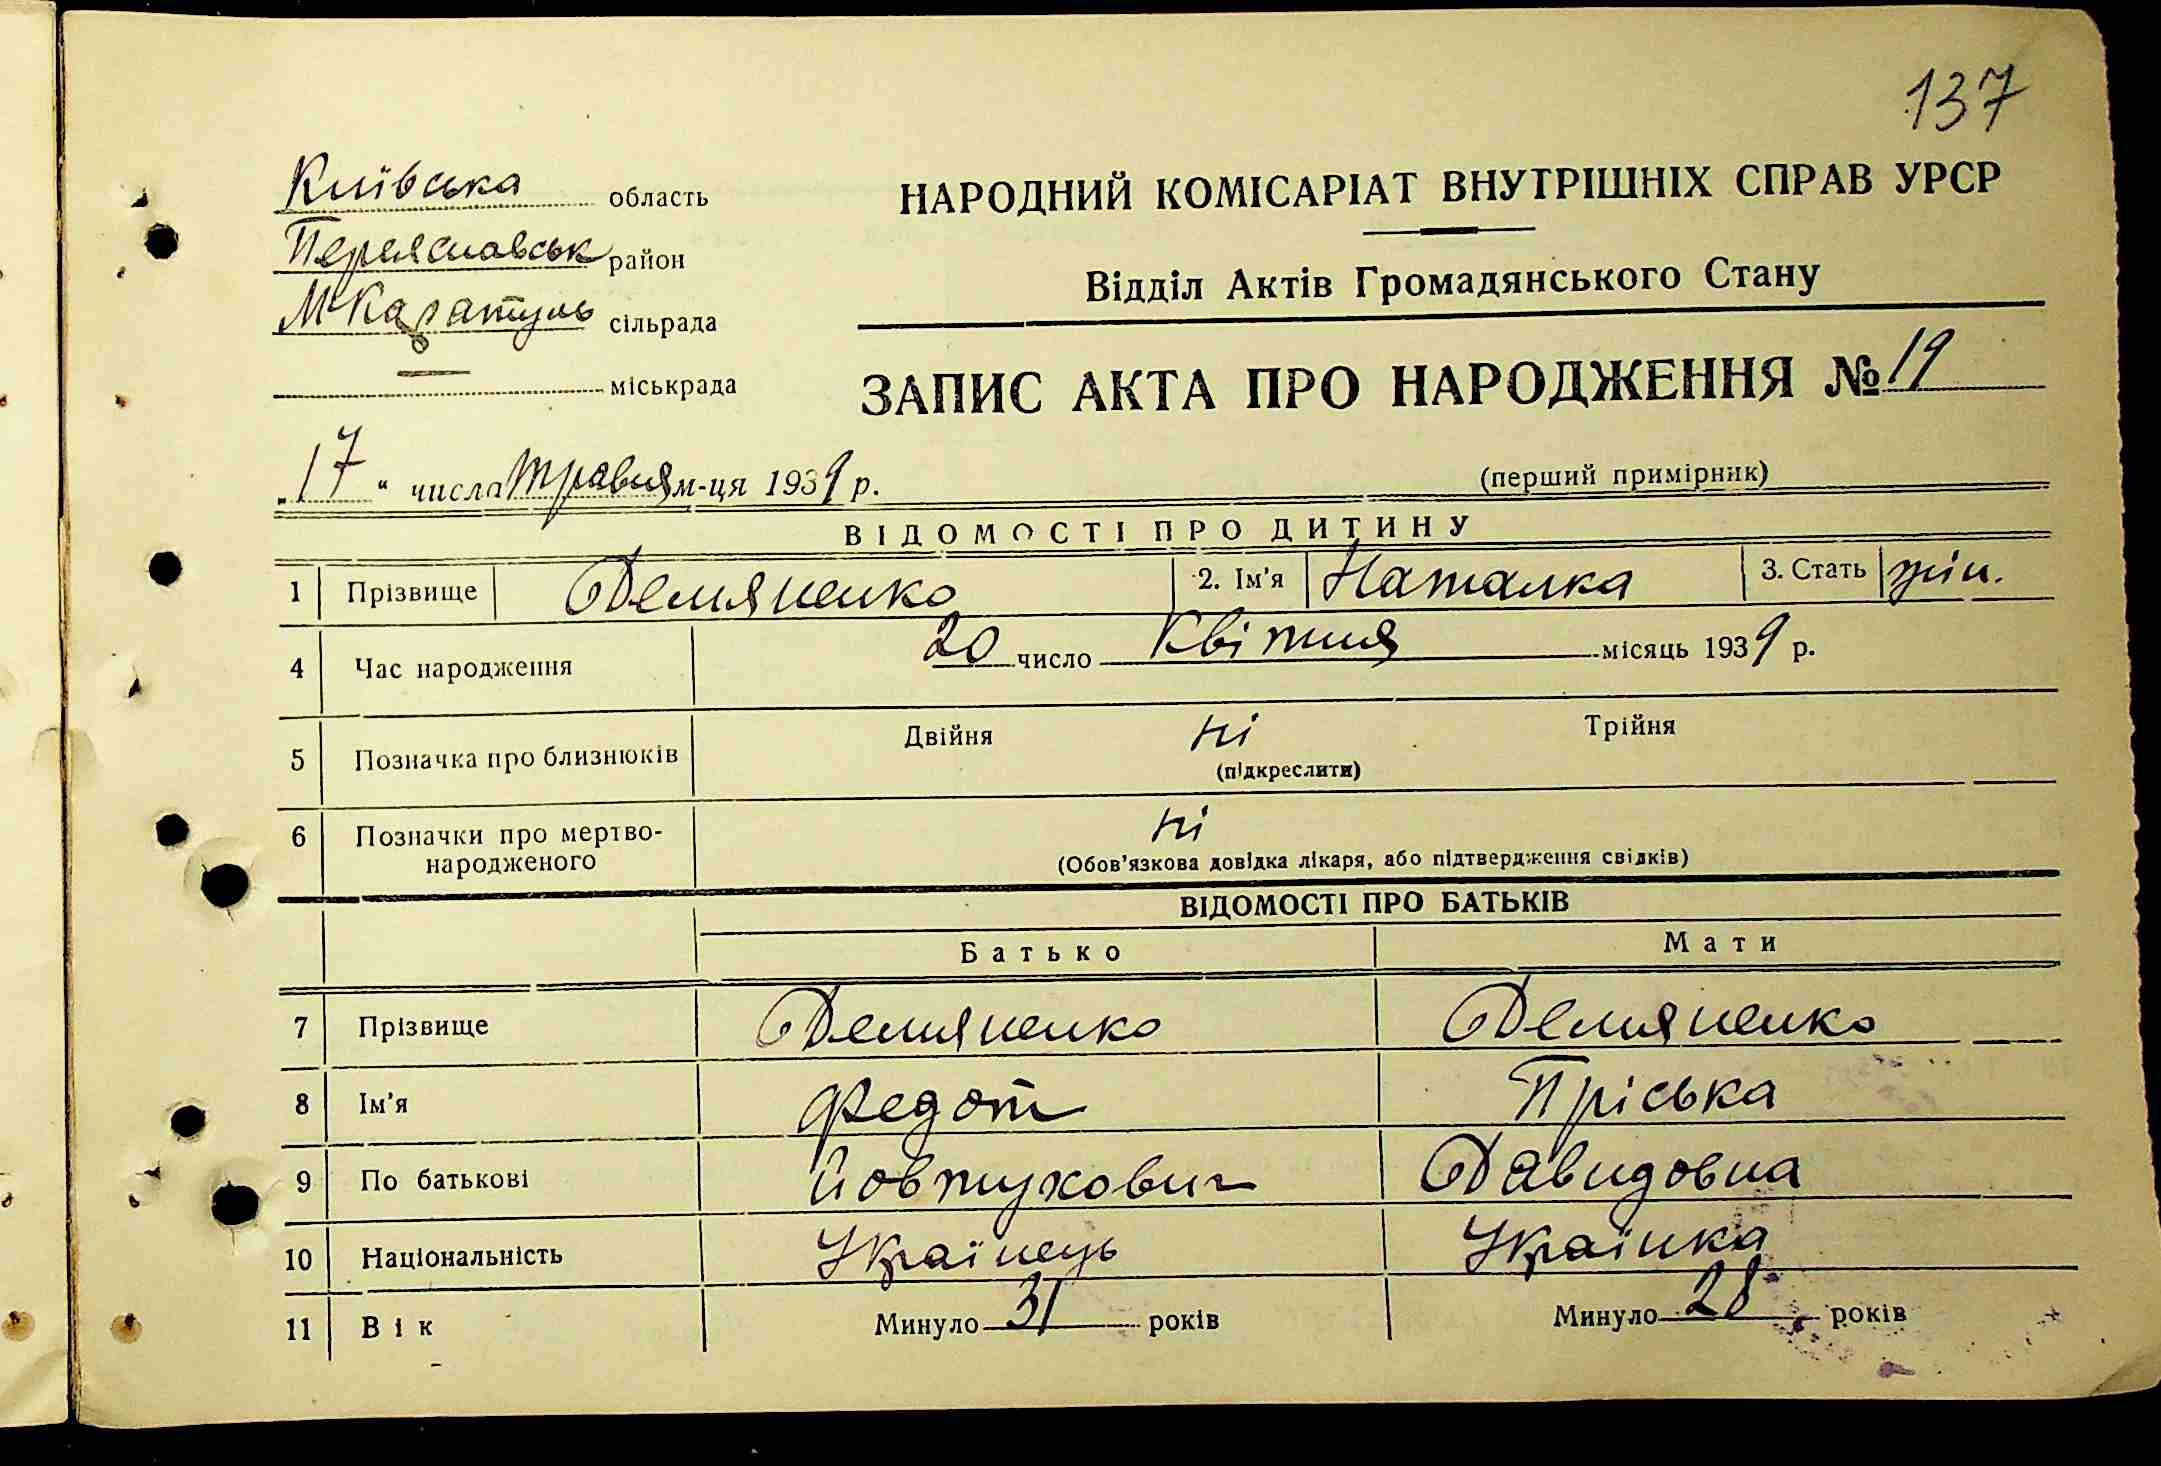 137
Київська область
Переяславськ район
М Каратуль сільрада
— міськрада
НАРОДНИЙ КОМІСАРІАТ ВНУТРІШНІХ СПРАВ УРСР
Відділ Актів Громадянського Стану
ЗАПИС АКТА ПРО НАРОДЖЕННЯ № 19
„17“ числа травня м-ця 1939 р.
(перший примірник)
ВІДОМОСТІ ПРО ДИТИНУ
1 Прізвище Демяненко 2. Ім'я Наталка 3. Стать жін.
4 Час народження 20 число Квітня місяць 1939 р.
5 Позначка про близнюків Двійня ні Трійня
(підкреслити)
6 Позначки про мертво-
народженого
ні
(Обов'язкова довідка лікаря, або підтвердження свідків)
ВІДОМОСТІ ПРО БАТЬКІВ
Батько Мати
7 Прізвище Демяненко Демяненко
8 Ім'я Федот Пріська
9 По батькові Йовтухович Давидовна
10 Національність Українець Українка
11 Вік Минуло 31 років Минуло 28 років